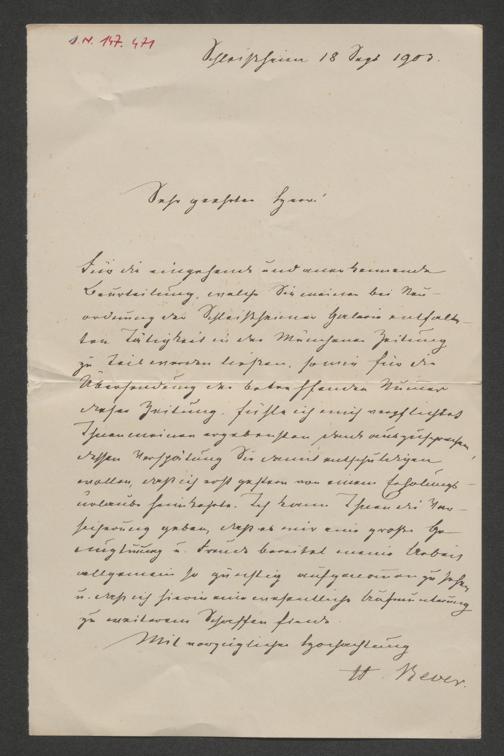 I.N. 147.471
Schleißheim 18 Sept 1903.
Sehr geehrter Herr!
Für die eingehende und anerkennende
Beurteilung, welche Sie meiner bei Neu-
ordnung der Schleißheimer Galerie entfalte-
ten Tätigkeit in der Münchener Zeitung
zu teil werden ließen, sowie für die
Übersendung der betreffenden Nummer
dieser Zeitung, fühle ich mich verpflichtet
Ihnen meinen ergebensten Dank auszusprechen,
dessen Verspätung Sie damit entschuldigen
wollen, daß ich erst gestern von einem Erholungs-
urlaube heimkehrte. Ich kann Ihnen die Ver-
sicherung geben, daß es mir eine große Ge-
nugtuung u. Freude bereitet meine Arbeit
allgemein so günstig aufgenommen zu sehen,
u. daß ich hierin eine wesentliche Aufmunterung
zu weiterem Schaffen finde.
Mit vorzüglicher Hochachtung